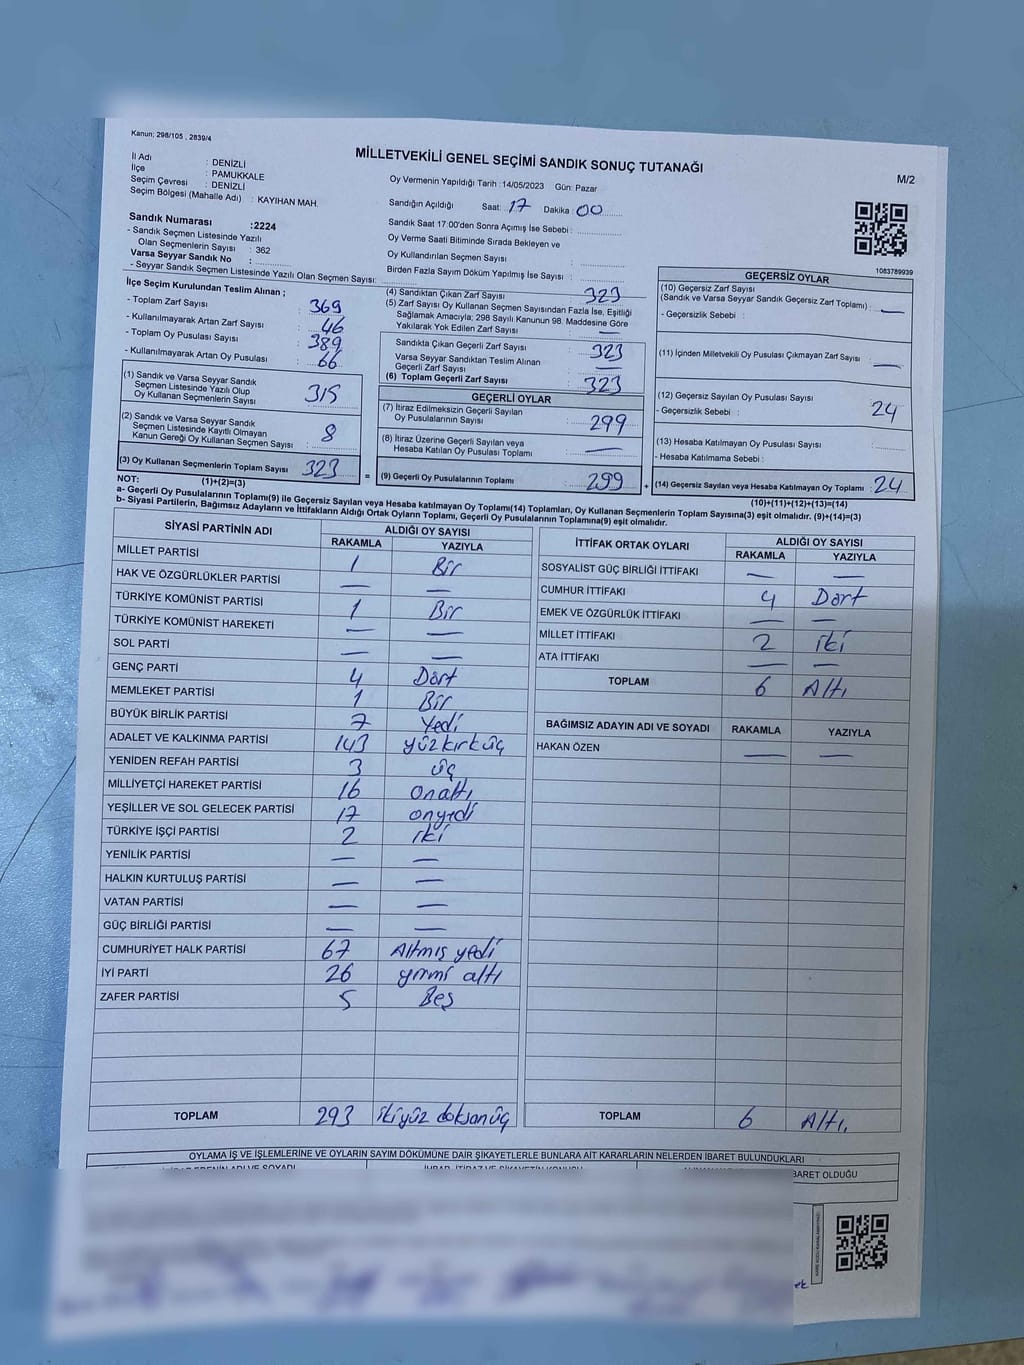 Kanun; 298/105 , 2839/4
MİLLETVEKİLİ GENEL SEÇİMİ SANDIK SONUÇ TUTANAĞI
M/2
İl Adı : DENİZLİ
İlçe : PAMUKKALE
Seçim Çevresi : DENİZLİ
Seçim Bölgesi (Mahalle Adı) : KAYIHAN MAH.
Oy Vermenin Yapıldığı Tarih :14/05/2023 Gün: Pazar
Sandığın Açıldığı Saat: 17 Dakika : 00
Sandık Saat 17:00'den Sonra Açımış İse Sebebi :
Oy Verme Saati Bitiminde Sırada Bekleyen ve
Oy Kullandırılan Seçmen Sayısı :
Birden Fazla Sayım Döküm Yapılmış İse Sayısı :
Sandık Numarası :2224
- Sandık Seçmen Listesinde Yazılı
Olan Seçmenlerin Sayısı : 362
Varsa Seyyar Sandık No :
- Seyyar Sandık Seçmen Listesinde Yazılı Olan Seçmen Sayısı:
1083789939
İlçe Seçim Kurulundan Teslim Alınan ;
- Toplam Zarf Sayısı : 369
- Kullanılmayarak Artan Zarf Sayısı : 46
- Toplam Oy Pusulası Sayısı : 389
- Kullanılmayarak Artan Oy Pusulası : 66
(1) Sandık ve Varsa Seyyar Sandık
Seçmen Listesinde Yazılı Olup
Oy Kullanan Seçmenlerin Sayısı : 315
(2) Sandık ve Varsa Seyyar Sandık
Seçmen Listesinde Kayıtlı Olmayan
Kanun Gereği Oy Kullanan Seçmen Sayısı : 8
(3) Oy Kullanan Seçmenlerin Toplam Sayısı : 323
(4) Sandıktan Çıkan Zarf Sayısı : 323
(5) Zarf Sayısı Oy Kullanan Seçmen Sayısından Fazla İse, Eşitliği
Sağlamak Amacıyla; 298 Sayılı Kanunun 98. Maddesine Göre
Yakılarak Yok Edilen Zarf Sayısı : —
Sandıkta Çıkan Geçerli Zarf Sayısı : 323
Varsa Seyyar Sandıktan Teslim Alınan
Geçerli Zarf Sayısı : —
(6) Toplam Geçerli Zarf Sayısı : 323
GEÇERLİ OYLAR
(7) İtiraz Edilmeksizin Geçerli Sayılan
Oy Pusulalarının Sayısı : 299
(8) İtiraz Üzerine Geçerli Sayılan veya
Hesaba Katılan Oy Pusulası Toplamı : —
= (9) Geçerli Oy Pusulalarının Toplamı : 299
GEÇERSİZ OYLAR
(10) Geçersiz Zarf Sayısı
(Sandık ve Varsa Seyyar Sandık Geçersiz Zarf Toplamı) : —
- Geçersizlik Sebebi :
(11) İçinden Milletvekili Oy Pusulası Çıkmayan Zarf Sayısı : —
(12) Geçersiz Sayılan Oy Pusulası Sayısı : 24
- Geçersizlik Sebebi :
(13) Hesaba Katılmayan Oy Pusulası Sayısı :
- Hesaba Katılmama Sebebi :
+ (14) Geçersiz Sayılan veya Hesaba Katılmayan Oy Toplamı : 24
NOT: (1)+(2)=(3)
(10)+(11)+(12)+(13)=(14)
a- Geçerli Oy Pusulalarının Toplamı(9) ile Geçersiz Sayılan veya Hesaba katılmayan Oy Toplamı(14) Toplamları, Oy Kullanan Seçmenlerin Toplam Sayısına(3) eşit olmalıdır. (9)+(14)=(3)
b- Siyasi Partilerin, Bağımsız Adayların ve İttifakların Aldığı Ortak Oyların Toplamı, Geçerli Oy Pusulalarının Toplamına(9) eşit olmalıdır.
SİYASİ PARTİNİN ADI ALDIĞI OY SAYISI
RAKAMLA YAZIYLA
MİLLET PARTİSİ 1 Bir
HAK VE ÖZGÜRLÜKLER PARTİSİ — —
TÜRKİYE KOMÜNİST PARTİSİ 1 Bir
TÜRKİYE KOMÜNİST HAREKETİ — —
SOL PARTİ — —
GENÇ PARTİ 4 Dört
MEMLEKET PARTİSİ 1 Bir
BÜYÜK BİRLİK PARTİSİ 7 Yedi
ADALET VE KALKINMA PARTİSİ 143 yüzkırküç
YENİDEN REFAH PARTİSİ 3 üç
MİLLİYETÇİ HAREKET PARTİSİ 16 Onaltı
YEŞİLLER VE SOL GELECEK PARTİSİ 17 onyedi
TÜRKİYE İŞÇİ PARTİSİ 2 iki
YENİLİK PARTİSİ — —
HALKIN KURTULUŞ PARTİSİ — —
VATAN PARTİSİ — —
GÜÇ BİRLİĞİ PARTİSİ — —
CUMHURİYET HALK PARTİSİ 67 Altmış yedi
İYİ PARTİ 26 yirmi altı
ZAFER PARTİSİ 5 Beş
TOPLAM 293 ikiyüz doksanüç
İTTİFAK ORTAK OYLARI ALDIĞI OY SAYISI
RAKAMLA YAZIYLA
SOSYALİST GÜÇ BİRLİĞİ İTTİFAKI — —
CUMHUR İTTİFAKI 4 Dört
EMEK VE ÖZGÜRLÜK İTTİFAKI — —
MİLLET İTTİFAKI 2 iki
ATA İTTİFAKI — —
TOPLAM 6 Altı
BAĞIMSIZ ADAYIN ADI VE SOYADI RAKAMLA YAZIYLA
HAKAN ÖZEN — —
TOPLAM 6 Altı.
OYLAMA İŞ VE İŞLEMLERİNE VE OYLARIN SAYIM DÖKÜMÜNE DAİR ŞİKAYETLERLE BUNLARA AİT KARARLARIN NELERDEN İBARET BULUNDUKLARI
İBARET OLDUĞU